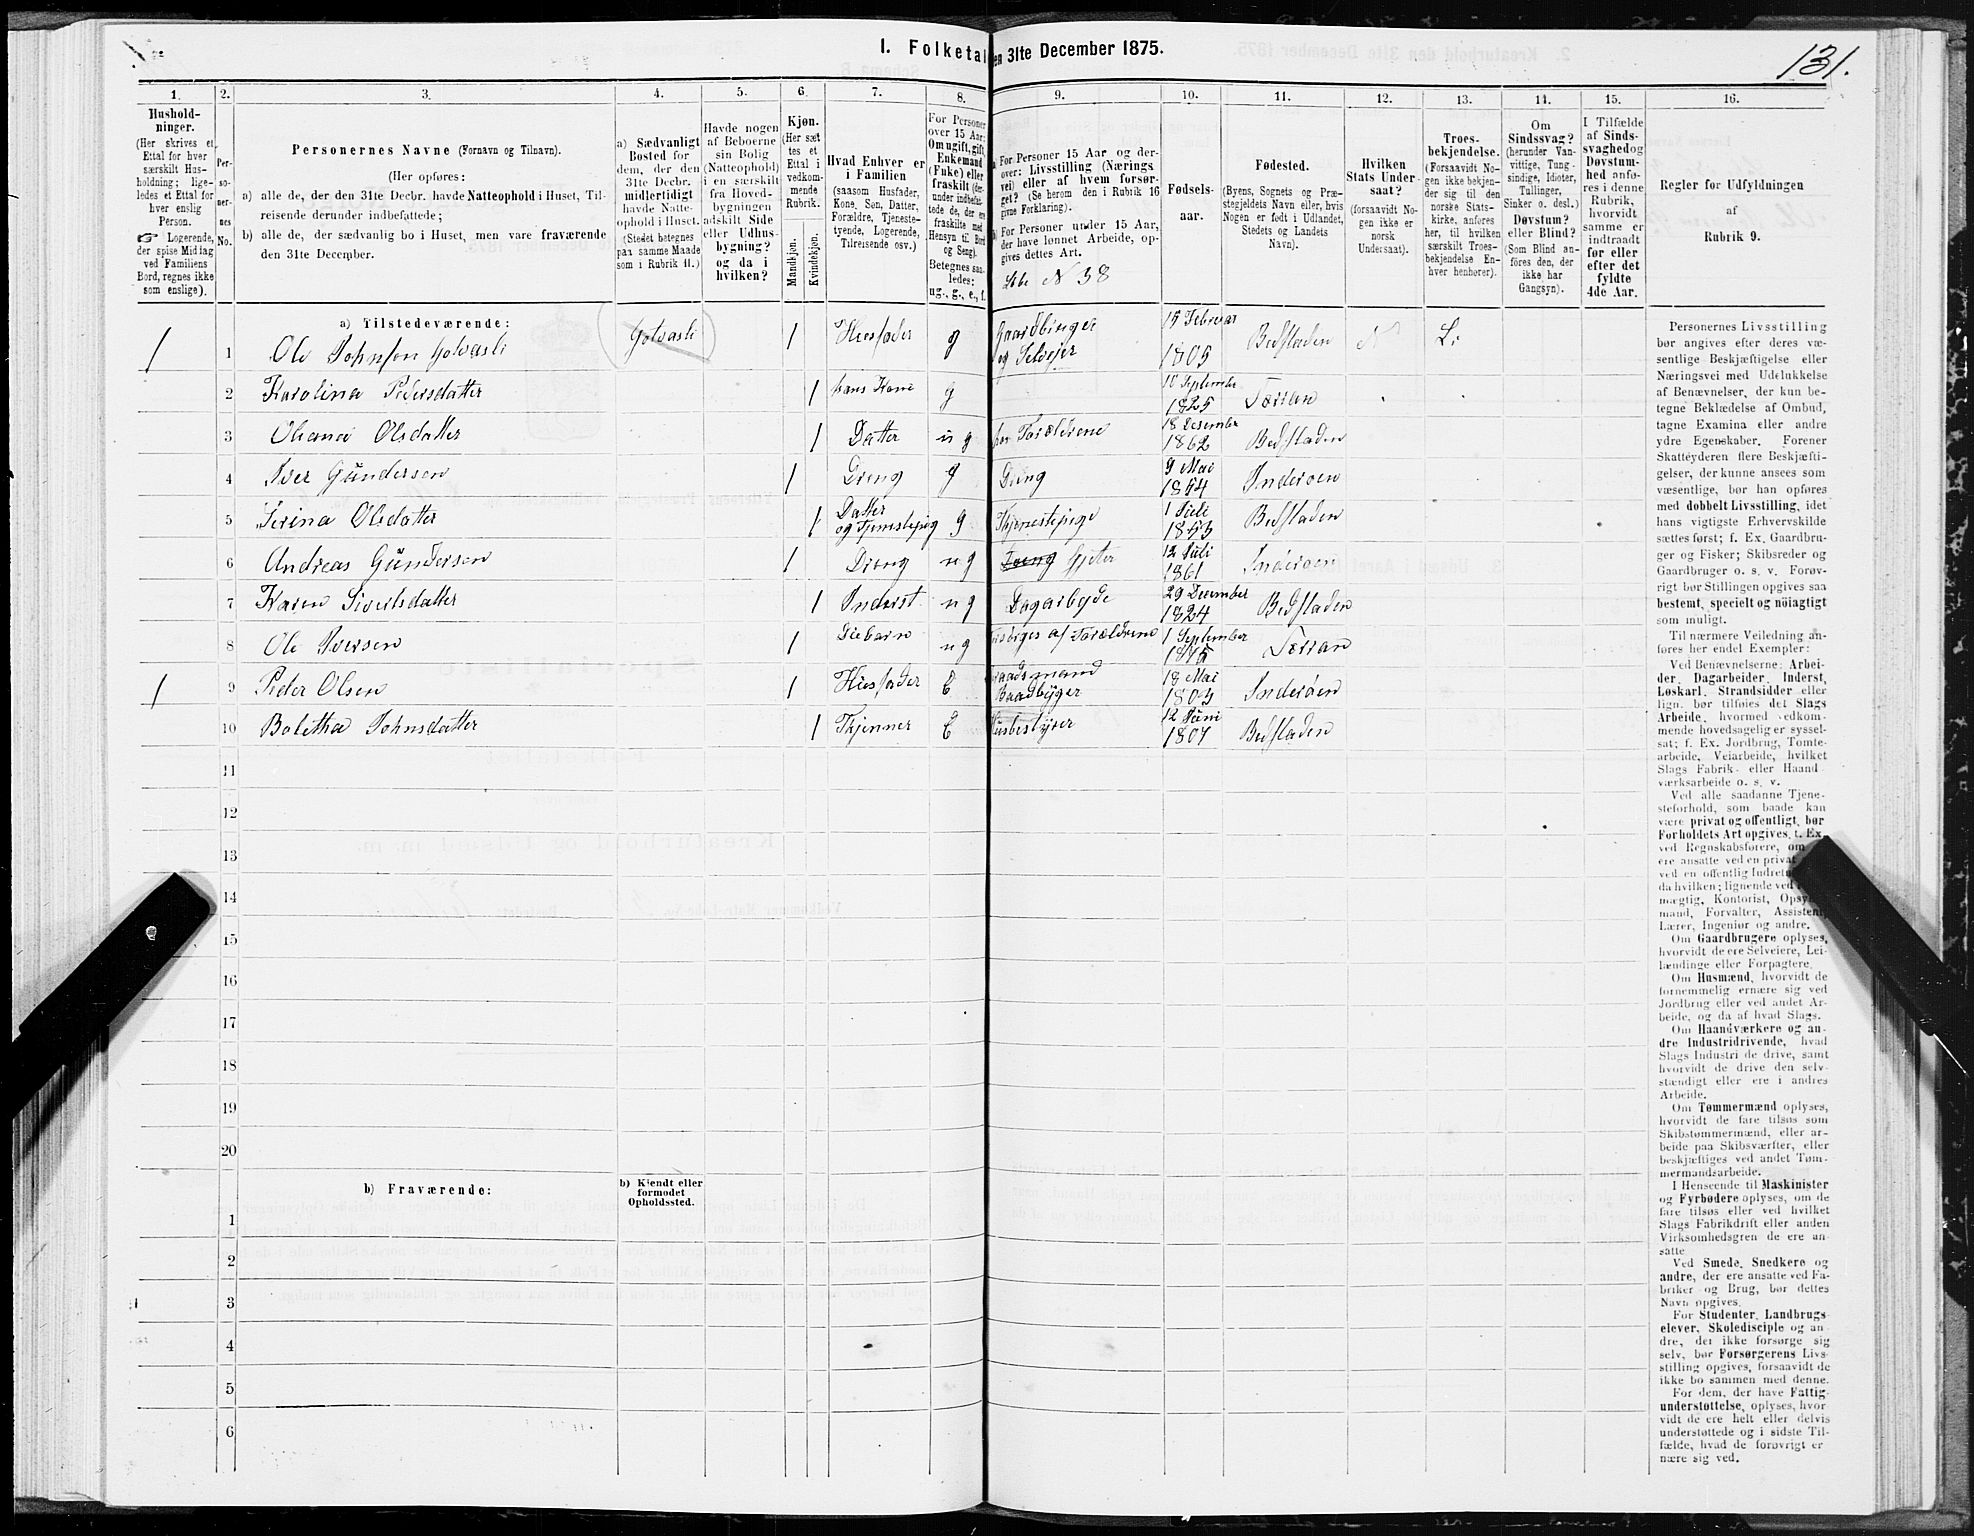 1. Folketal
en 31te December 1875.
131.
1.
2.
3.
4.
5.
6.
7.
8.
9.
10.
11.
12.
13.
14.
15.
16.
Hushold-
ninger.
(Her skrives et
Ettal for hver
særskilt Hus-
holdning; lige-
ledes et Ettal for
hver enslig
Person.
☞ Logerende,
der spise Middag
ved Familiens
Bord, regnes ikke
som enslige).
Per-
so-
ner-
nes
No.
Personernes Navne (Fornavn og Tilnavn).
(Her opføres:
a) alle de, der den 31te Decbr. havde Natteophold i Huset, Til-
reisende derunder indbefattede;
b) alle de, der sædvanlig bo i Huset, men vare fraværende
den 31te December.
a) Sædvanligt
Bosted for
dem, der den
31te Decbr.
midlertidigt
havde Natte-
ophold i Huset.
(Stedet betegnes
paa samme Maade
som i Rubrik 11.)
Havde nogen
af Beboerne
sin Bolig
(Natteophold)
i en særskilt
fra Hoved-
bygningen
adskilt Side
eller Udhus-
bygning?
og da i
hvilken?
Kjøn.
(Her sæt-
tes et
Ettal i
vedkom-
mende
Rubrik.
Mandkjøn.
Kvindekjøn.
Hvad Enhver er
i Familien
(saasom Husfader,
Kone, Søn, Datter,
Forældre, Tjeneste-
tyende, Logerende,
Tilreisende osv.)
For Personer
over 15 Aar:
Om ugift, gift,
Enkemand
(Enke) eller
fraskilt (der-
under indbefat-
tede de, der ere
fraskilte med
Hensyn til Bord
og Seng).
Betegnes saa-
ledes:
ug., g., e., f.
For Personer 15 Aar og der-
over: Livsstilling (Nærings
vei) eller af hvem forsør-
get? (Se herom den i Rubrik 16
givne Forklaring).
For Personer under 15 Aar,
der have lønnet Arbeide, op-
gives dettes Art.
Løbe N 38
Fødsels-
aar.
Fødested.
(Byens, Sognets og Præ-
stegjeldets Navn eller, hvis
Nogen er født i Udlandet,
Stedets og Landets
Navn).
Hvilken
Stats Under-
saat?
(forsaavidt No-
gen ikke er
norsk
Undersaat).
Troes-
bekjendelse.
(Forsaavidt No-
gen ikke bekjen-
der sig til den
norske Stats-
kirke, anføres
her, til hvilken
særskilt Troes-
bekjendelse En-
hver henhører).
Om
Sindssvag?
(herunder Van-
vittige, Tung-
sindige, Idioter,
Tullinger,
Sinker o. desl.)
Døvstum?
eller Blind?
(Som Blind an-
føres den, der
ikke har
Gangsyn).
I Tilfælde
af Sinds-
svaghed og
Døvstum-
hed anfø-
res i denne
Rubrik,
hvorvidt
samme er
indtraadt
før eller
efter det
fyldte
4de Aar.
Regler for Udfyldningen
af
Rubrik 9.
a) Tilstedeværende:
1 1 Ole Johnsen Golvasli Golvasli 1 Huusfader g Gaardbruger og Selveier 15 Februar 1805 Bedstaden N L.
2 Karolina Pedersdatter 1 hans Kone g 10 September 1825 Værran
3 Oleana Olsdatter 1 Datter u g hos Forældrene 18 Desember 1862 Bedstaden
4 Iver Gundersen 1 Dreng g Dreng 9 Mai 1854 Inderøen
5 Serina Olsdatter 1 Datter og Tjenestepige g Tjenestepige 1 Juli 1853 Bedstaden
6 Andreas Gundersen 1 Dreng u g Dreng Gjeter 12 Juli 1861 Inderøen
7 Karen Sivertsdatter 1 Inderst u g Dagarbejde 29 December 1824 Bedstaden
8 Ole Iversen 1 Diebarn u g forsørges af Forældrene 1 September 1875 Værran
1 9 Peder Olsen 1 Huusfader E Baadbyger 18 Mai 1803 Inderøen
10 Boletha Johnsdatter 1 Tjenner E Husbestyrer 12 Juni 1807 Bedstaden
11
12
13
14
15
16
17
18
19
20
b) Fraværende:
b) Kjendt eller
formodet
Opholdssted.
1
2
3
4
5
6
Personernes Livsstilling
bør angives efter deres væ-
sentlige Beskjæftigelse eller
Næringsvei med Udelukkelse
af Benævnelser, der kun be-
tegne Beklædelse af Ombud,
tagne Examina eller andre
ydre Egenskaber. Forener
Skatteyderen flere Beskjæfti-
gelser, der kunne ansees som
væsentlige, bør han opføres
med dobbelt Livsstilling, idet
hans vigtigste Erhvervskilde
sættes først; f. Ex. Gaardbru-
ger og Fisker; Skibsreder og
Gaardbruger o. s. v. Forøv-
rigt bør Stillingen opgives saa
bestemt, specielt og nøiagtigt
som muligt.
Til nærmere Veiledning an-
føres her endel Exempler:
Ved Benævnelserne: Arbei-
der, Dagarbeider, Inderst,
Løskarl, Strandsidder eller
lign. bør tilføies det Slags
Arbeide, hvormed vedkom-
mende hovedsagelig er syssel-
sat; f. Ex. Jordbrug, Tomte-
arbeide, Veiarbeide, hvilket
Slags Fabrik- eller Haand-
værksarbeide o. s. v.
Ved alle saadanne Tjene-
steforhold, som baade kan
være privat og offentligt, bør
Forholdets Art opgives, f. Ex.
ved Regnskabsførere, om
ere ansatte ved en privat
ved en offentlig Indretn
da hvilken; lignende ved
mægtig, Kontorist, Opsy
mand, Forvalter, Assistent,
Lærer, Ingeniør og andre.
Om Gaardbrugere oplyses,
hvorvidt de ere Selveiere, Lei-
lændinge eller Forpagtere.
Om Husmænd, hvorvidt de
fornemmelig ernære sig ved
Jordbrug eller ved andet Ar-
beide, og da af hvad Slags.
Om Haandværkere og an-
dre Industridrivende, hvad
Slags Industri de drive, samt
hvorvidt de drive den selv-
stændigt eller ere i andres
Arbeide.
Om Tømmermænd oplyses,
hvorvidt de fare tilsøs som
Skibstømmermænd, eller ar-
beide paa Skibsværfter, eller
beskjæftiges ved andet Tøm-
mermandsarbeide.
I Henseende til Maskinister
og Fyrbødere oplyses, om de
fare tilsøs eller ved hvilket
Slags Fabrikdrift eller anden
Virksomhedsgren de ere an-
satte
Ved Smede, Snedkere og
andre, der ere ansatte ved Fa-
briker og Brug, bør dettes
Navn opgives.
For Studenter, Landbrugs-
elever, Skoledisciple og an-
dre, der ikke forsørge sig
selv, bør Forsørgerens Livs-
stilling opgives, forsaavidt de
ikke bo sammen med denne.
For dem, der have Fattig-
understøttelse, oplyses, hvor-
vidt de ere helt eller delvis
understøttede og i sidste Til-
fælde, hvad de forøvrigt er-
nære sig ved.